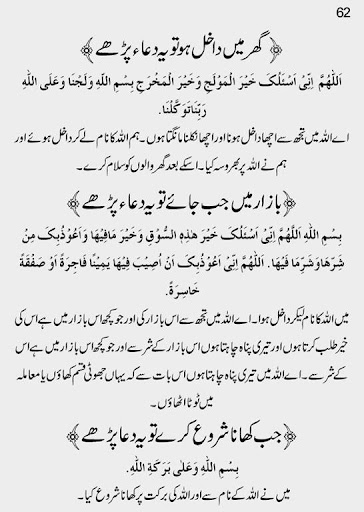 62
﴿ گھر میں داخل ہو تو یہ دعاء پڑھے ﴾
اَللّٰهُمَّ اِنِّیْ اَسْئَلُکَ خَیْرَ الْمَوْلَجِ وَخَیْرَ الْمَخْرَجِ بِسْمِ اللّٰهِ وَلَجْنَا وَعَلَی اللّٰهِ
رَبِّنَا تَوَكَّلْنَا.
اے اللہ میں تجھ سے اچھا داخل ہونا اور اچھا نکلنا مانگتا ہوں۔ ہم اللہ کا نام لے کر داخل ہوئے اور
ہم نے اللہ پر بھروسہ کیا۔ اسکے بعد گھر والوں کو سلام کرے۔
﴿ بازار میں جب جائے تو یہ دعاء پڑھے ﴾
بِسْمِ اللّٰهِ اَللّٰهُمَّ اِنِّیْ اَسْئَلُکَ خَیْرَ هٰذِهِ السُّوْقِ وَخَیْرَ مَافِیْهَا وَاَعُوْذُبِکَ مِنْ
شَرِّهَا وَشَرِّ مَا فِیْهَا. اَللّٰهُمَّ اِنِّیْ اَعُوْذُبِکَ اَنْ اُصِیْبَ فِیْهَا یَمِیْنًا فَاجِرَةً اَوْ صَفْقَةً
خَاسِرَةً.
میں اللہ کا نام لیکر داخل ہوا۔ اے اللہ میں تجھ سے اس بازار کی اور جو کچھ اس بازار میں ہے اس کی
خیر طلب کرتا ہوں اور تیری پناہ چاہتا ہوں اس بازار کے شر سے اور جو کچھ اس بازار میں ہے اس
کے شر سے۔ اے اللہ میں تیری پناہ چاہتا ہوں اس بات سے کہ یہاں جھوٹی قسم کھاؤں یا معاملہ
میں ٹوٹا اٹھاؤں۔
﴿ جب کھانا شروع کرے تو یہ دعا پڑھے ﴾
بِسْمِ اللّٰهِ وَعَلٰی بَرَكَةِ اللّٰهِ.
میں نے اللہ کے نام سے اور اللہ کی برکت پر کھانا شروع کیا۔